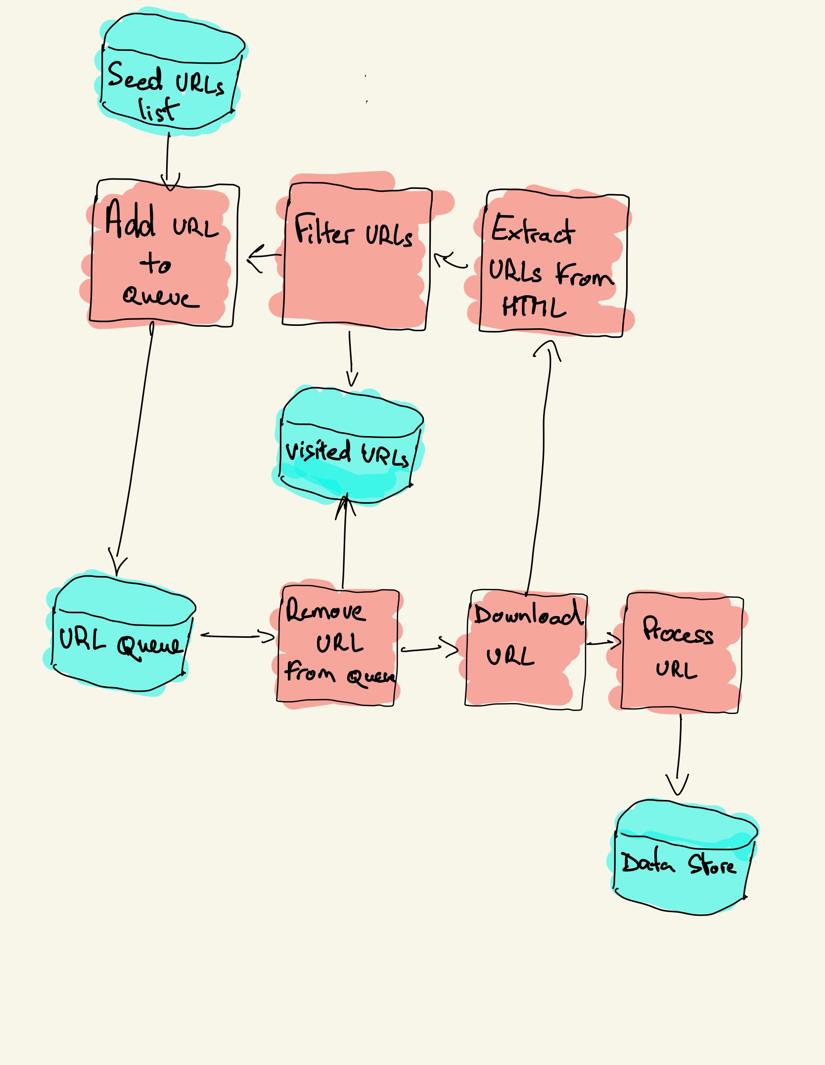 Seed URLs
list
Add URL
to
Queue
Filter URLs
Extract
URLs from
HTML
visited URLs
URL Queue
Remove
URL
from Queue
Download
URL
Process
URL
Data Store